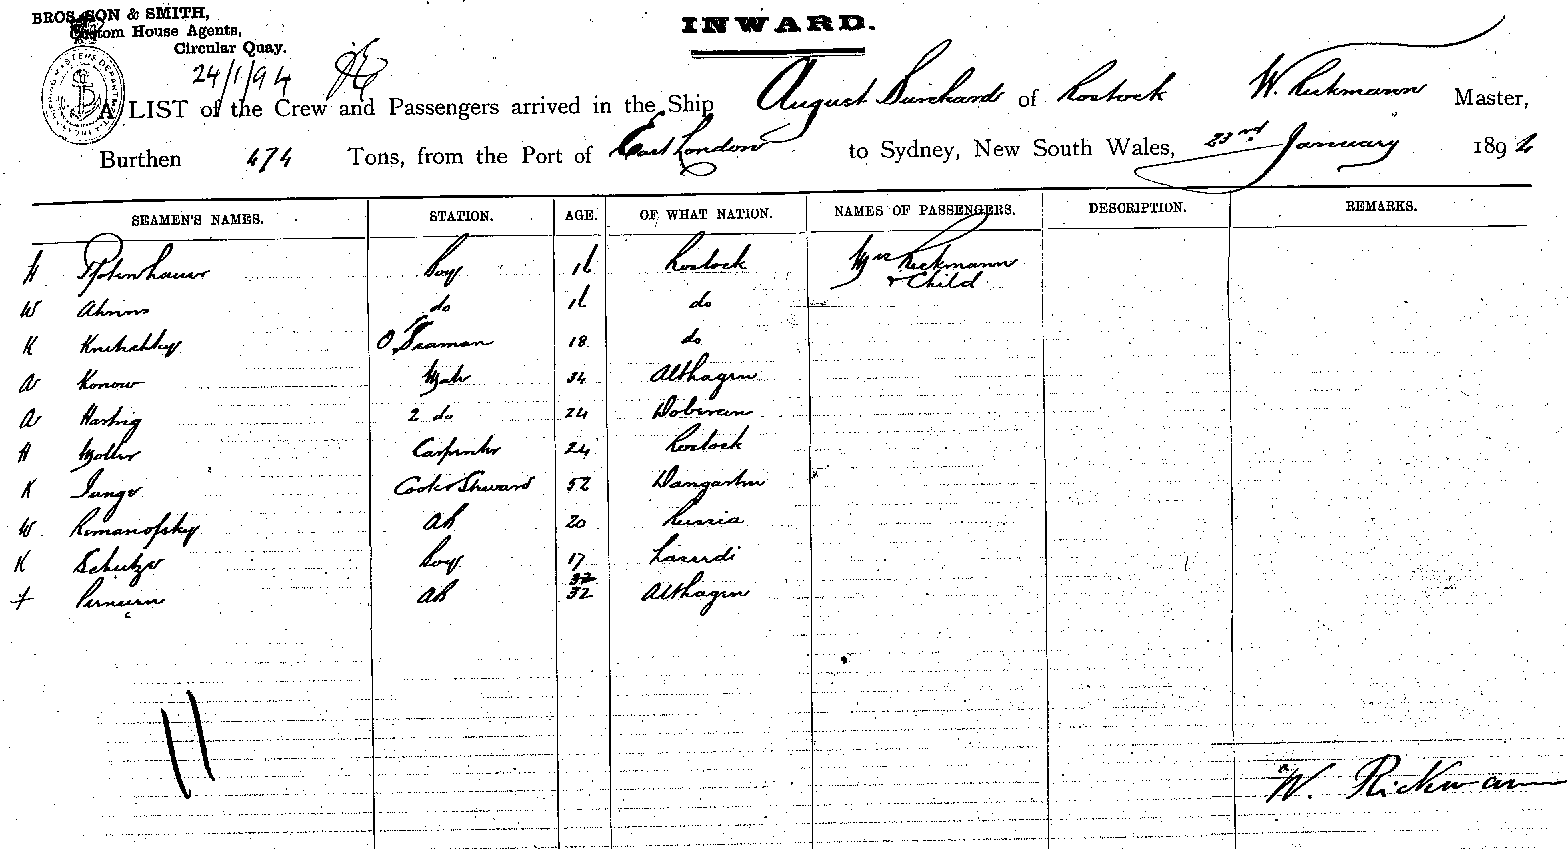 BROS. SON & SMITH,
Custom House Agents,
Circular Quay.
24/1/94
INWARD.
A LIST of the Crew and Passengers arrived in the Ship August Burchard of Rostock W. Rickmann Master,
Burthen 474 Tons, from the Port of East London to Sydney, New South Wales, 23rd January 1894
SEAMEN'S NAMES. STATION. AGE. OF WHAT NATION. NAMES OF PASSENGERS. DESCRIPTION. REMARKS.
H Boy 16 Rostock Mrs Rickmann
& Child
W Ahrens do 16 do
K O Seaman 18 do
A Konow Mate 34 Althagen
A Hartig 2 do 24 Doberan
H Moller Carpenter 24 Rostock
K Junge Cook & Steward 52 Damgarten
W Romanofsky AB 20 Russia
K Schutze Boy 17
32
AB 32 Althagen
11
W. Rickmann